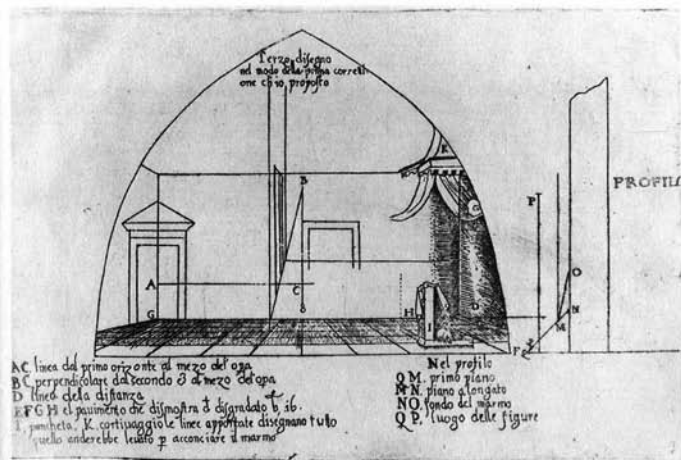 Terzo disegno
nel modo della prima corretti
one ch io proposto
K
B
G
PROFILO
P
A
C
O
G
H
D
N
I
M
F
A C. linea dal primo orizonte al mezo del opa
B C. perpendicolare dal secondo al mezo del opa
D linea della distanza
E F G H el pavimento che dismostra disgradato
I, pancheta, K. cortinaggio le linee appontate disegnano tutto
quello anderebbe levato p acconciare il marmo
Nel profilo
Q M. primo piano
M N. piano alongato
N O. fondo del marmo
Q P. luogo delle figure